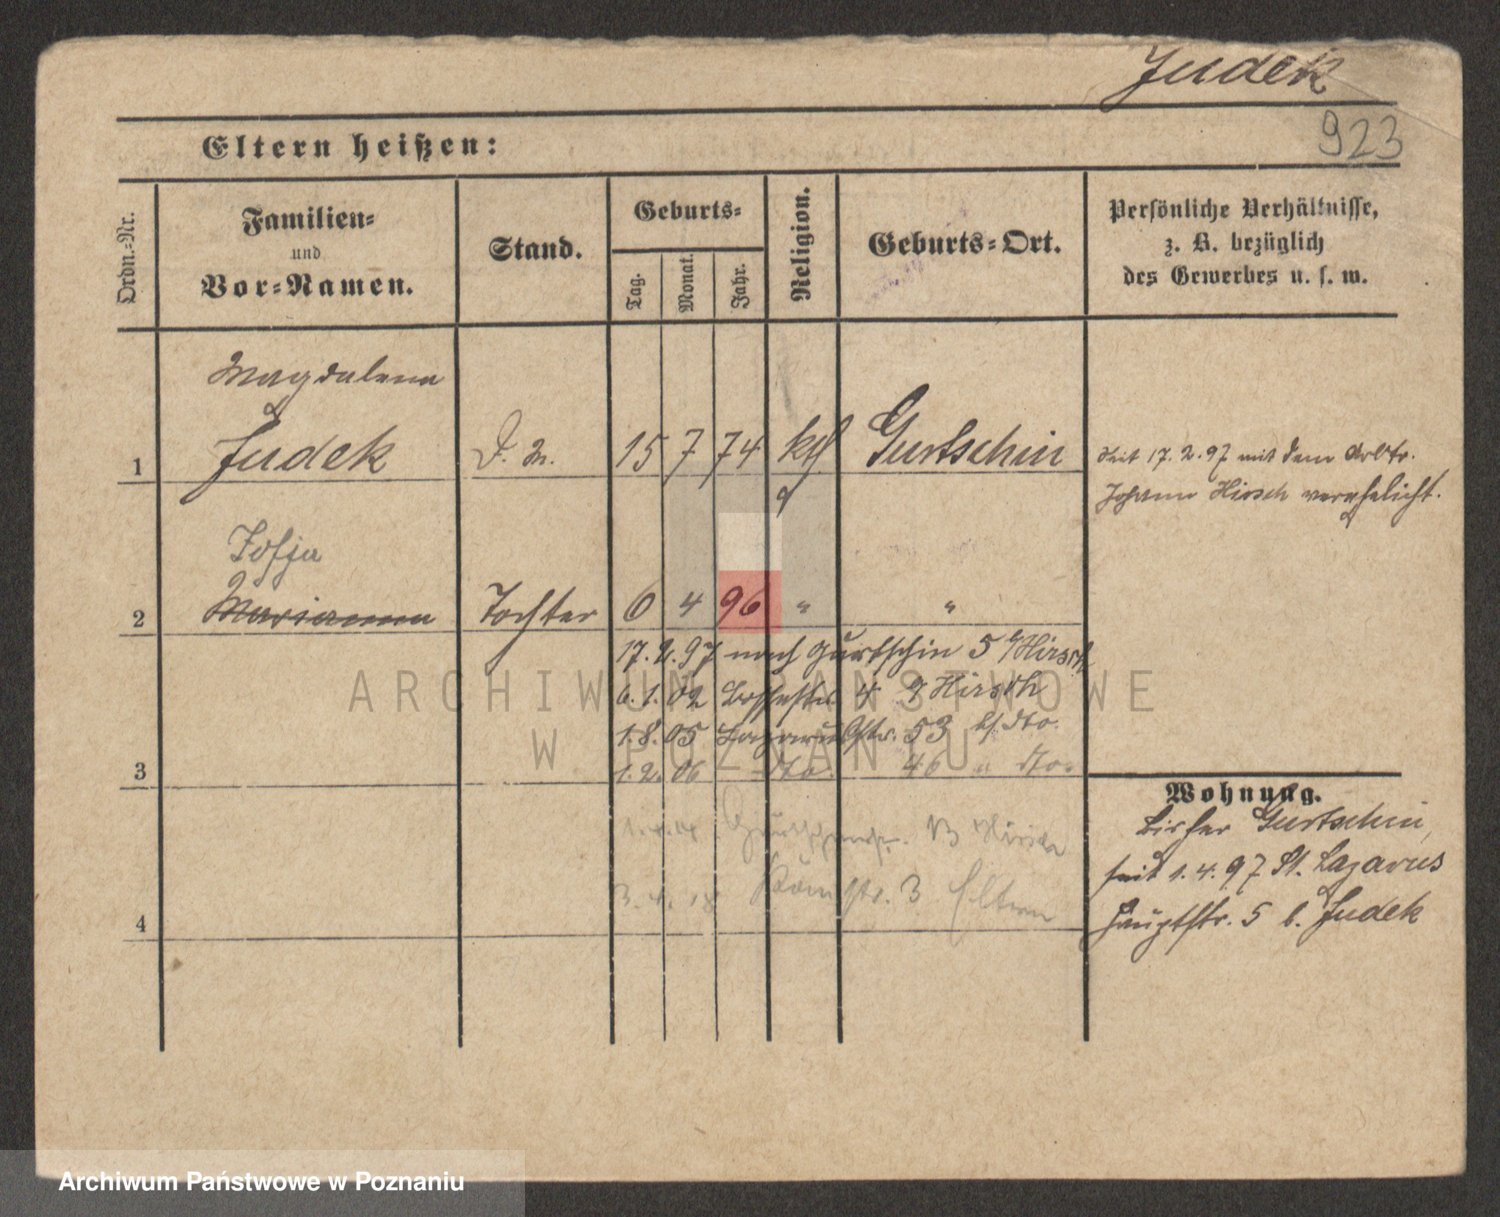 Judek
923
Eltern heißen:
Ordn.-Nr.
Familien-
und
Vor-Namen.
Stand.
Geburts-
Tag.
Monat.
Jahr.
Religion.
Geburts-Ort.
Persönliche Verhältnisse,
z. B. bezüglich
des Gewerbes u. s. w.
Magdalena
1 Judek D. M. 15 7 74 kth Gurtschin
seit 17.2.97 mit dem Arbtr.
Johann Hirsch verehelicht.
Zofja
2 Marianna Tochter 6 4 96 " "
17.2.97 nach Gurtschin 5 b/Hirsch
ARCHIWUM PAŃSTWOWE
6.1.02 4 Hirsch
1.8.05 Lazarus 53 b/ dto.
W POZNANIU
3 1.2.06 dto. 46 " dto.
Wohnung.
1.4.14 13 Hirsch
bisher Gurtschin,
seit 1.4.97 St. Lazarus
4 3.4.18 Str. 3 Eltern
Hauptstr. 5 b. Judek
Archiwum Państwowe w Poznaniu